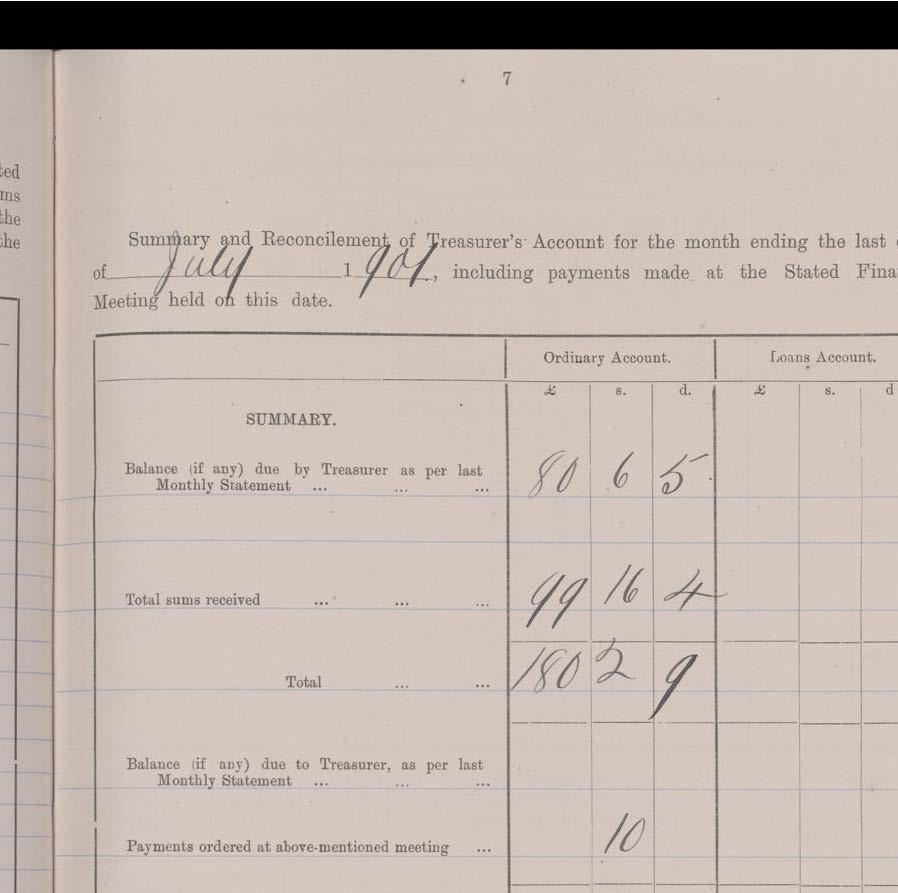 7
ted
ms
the
the
Summary and Reconcilement of Treasurer's Account for the month ending the last
of July 1901, including payments made at the Stated Fina
Meeting held on this date.
Ordinary Account. Loans Account.
£ s. d. £ s. d
SUMMARY.
Balance (if any) due by Treasurer as per last
Monthly Statement ... ... ... 80 6 5
Total sums received ... ... ... 99 16 4
Total ... ... 180 2 9
Balance (if any) due to Treasurer, as per last
Monthly Statement ... ... ...
Payments ordered at above-mentioned meeting ... 10